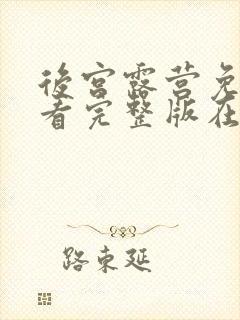 後宫露营免
看完整版在
路东延